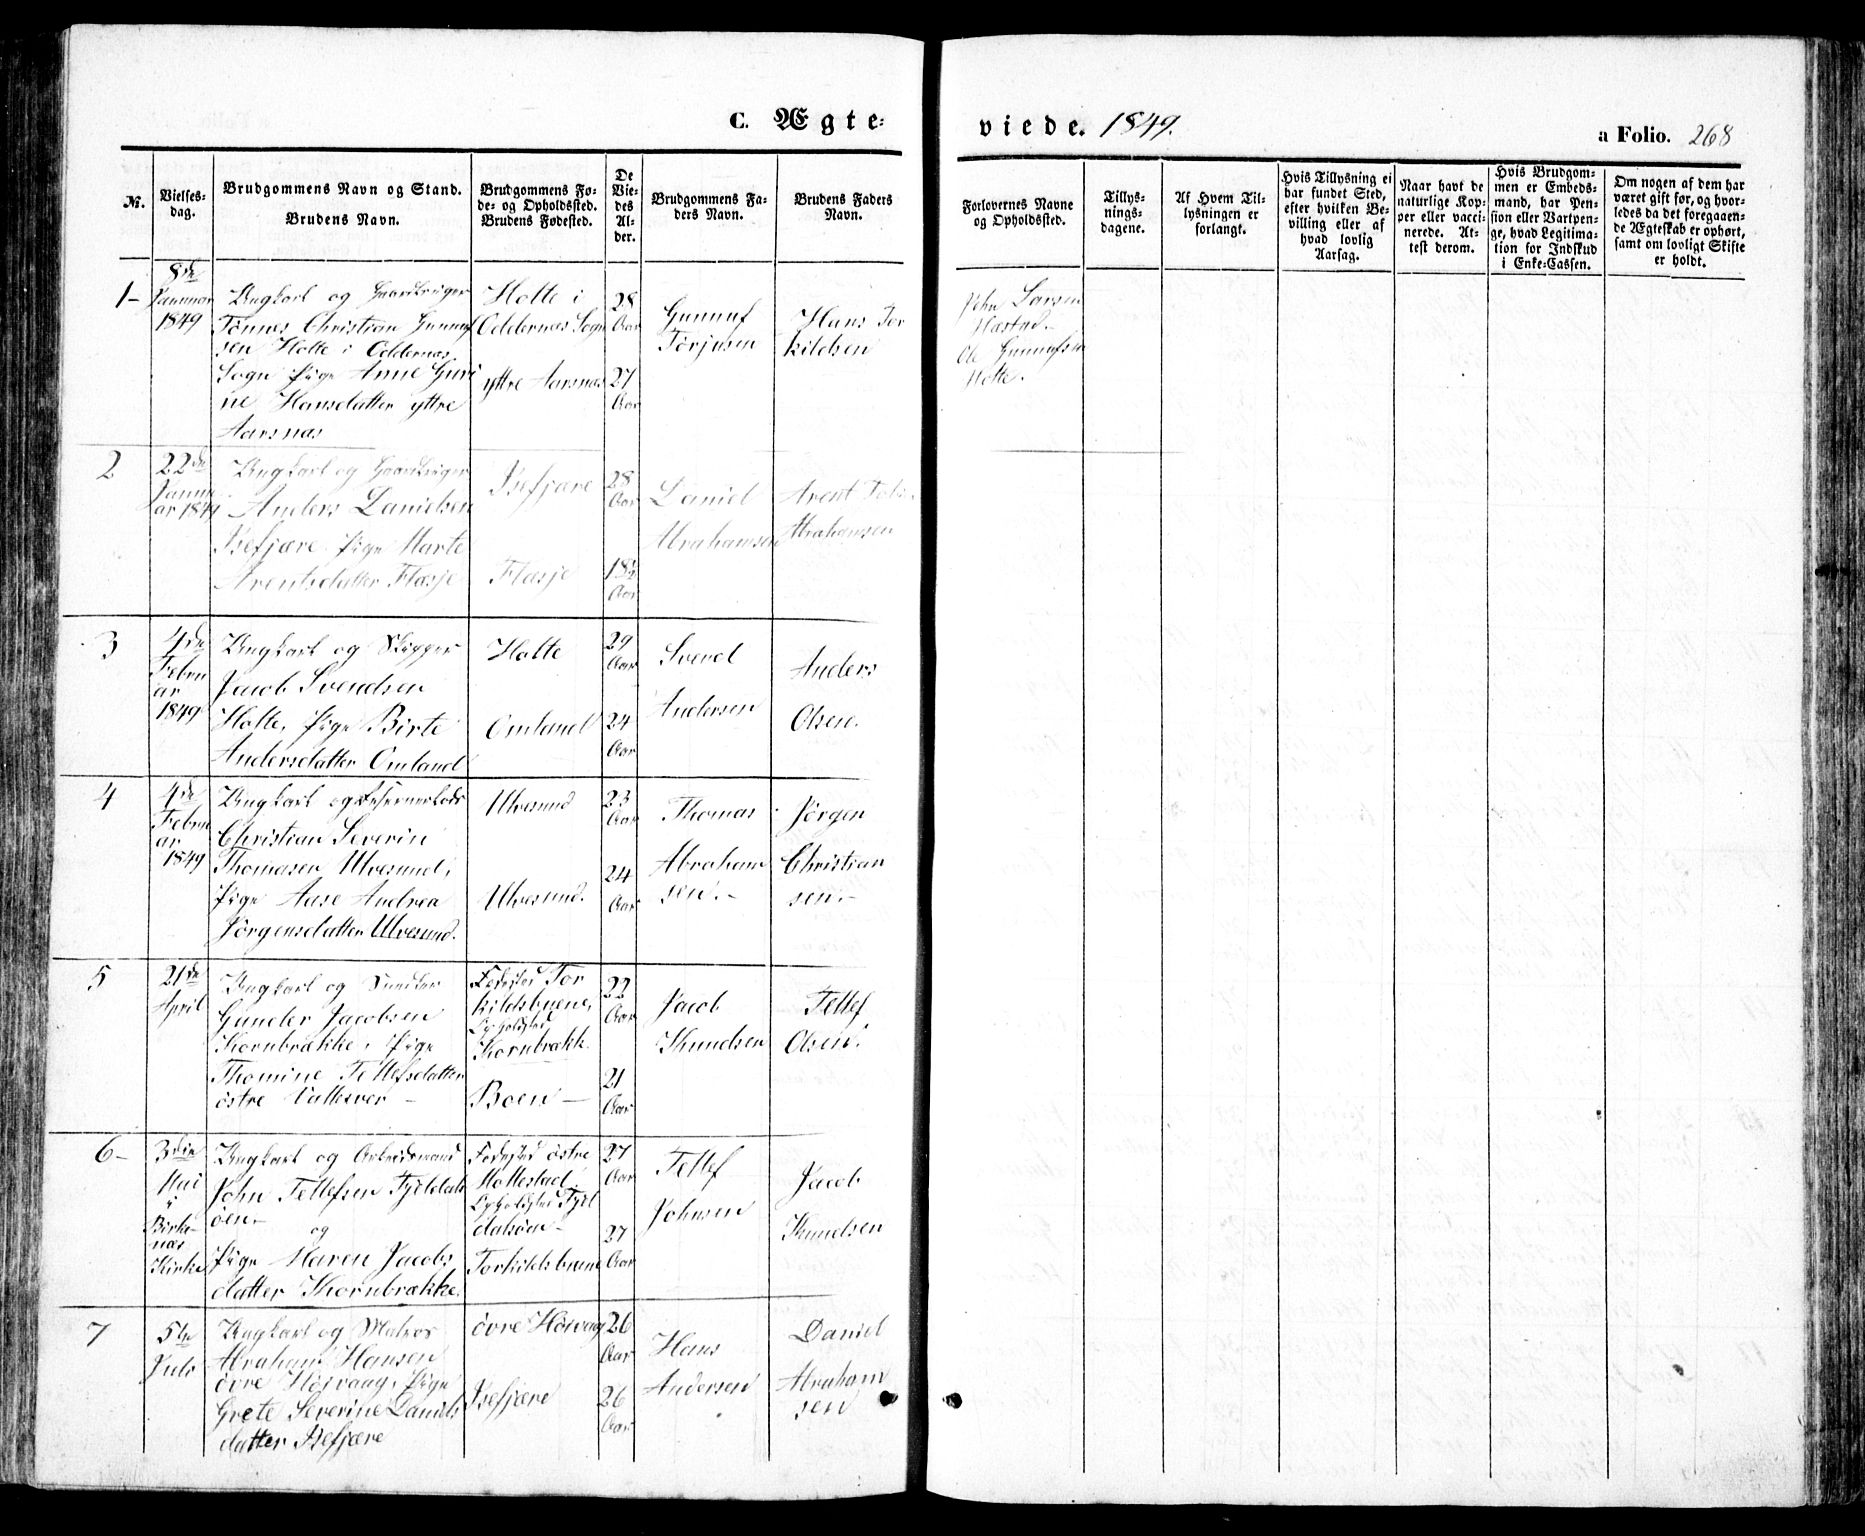 C. Ægte=
viede. 1849.
a Folio. 268
No.
Vielses-
dag.
Brudgommens Navn og Stand.
Brudens Navn.
Brudgommens Fø-
de- og Opholdssted.
Brudens Fødested.
De
Vie-
des
Al-
der.
Brudgommens Fa-
ders Navn.
Brudens Faders
Navn.
Forlovernes Navne
og Opholdssted.
Tillys-
nings-
dagene.
Af Hvem Til-
lysningen er
forlangt.
Hvis Tillysning ei
har fundet Sted,
efter hvilken Be-
villing eller af
hvad lovlig
Aarsag.
Naar havt de
naturlige Kop-
per eller vacci-
nerede. At-
test derom.
Hvis Brudgom-
men er Embeds-
mand, har Pen-
sion eller Vartpen-
ge, hvad Legitima-
tion for Indskud
i Enke-Cassen.
Om nogen af dem har
været gift før, og hvor-
ledes da det foregaaen-
de Ægteskab er ophørt,
samt om lovligt Skifte
er holdt.
1-
8de
Januar
1849
Ungkarl og Gaardbruger
Tönnes Christian Gunnuf
sen Holte i Oddernæs
Sogn Pige Anne Guri
ne Hansdatter yttre
Aarsnæs
Holte i
Oddernæs Sogn
yttre Aarsnæs
28
Aar
27
Aar
Gunnuf
Torjusen
Hans Tor
kildsen
John Larsen
Hæstad.-
Ole Gunnufsen
Holte.
2
22de
Janu
ar 1849
Ungkarl og Gaardbruger
Anders Danielsen
Isefjære. Pige Marte
Arentsdatter Flasje
Isefjære
Flasje
28
Aar
18½
Aar
Daniel
Abrahamsen
Arent Tobi
Abrahamsen
3
4de
Febru
ar
1849
Ungkarl og Skipper
Jacob Svendsen
Holte, Pige Birte
Andersdatter Omland
Holte
Omland
29
Aar
24
Aar
Svend
Andersen
Anders
Olsen.
4
4de
Febru
ar
1849
Ungkarl og
Christian Severin
Thomasen Ulvesund,
Pige Aase Andrea
Jörgensdatter Ulvesund.
Ulvesund
Ulvesund.
23
Aar
24
Aar
Thomas
Abraham
sen.-
Jörgen
Christian
sen.-
5
21de
April
Ungkarl og
Gunder Jacobsen
Kornbrække, Pige
Thomine Tellefsdatter
östre Vatlesver -
Fødested Tor
kildsbuene,
Opholdsted
Kornbrækk.
Boen -
22
Aar
21
Aar
Jacob
Knudsen
Tellef
Olsen.
6-
3die
Mai
i
Birke-
næs
Kirke
Ungkarl og Arbeidsmand
John Tellefsen Fjeldals
öen-
og
Pige Maren Jacobs
datter Kornbrække.
Fødested östre
Mollestad,
Opholdsted Fjel
dalsöen-
Torkildsbuene
27
Aar
27
Aar
Tellef
Johnsen
Jacob
Knudsen
7
5te
Juli
Ungkarl og Matros
Abraham Hansen
övre Höivaag, Pige
Grete Severine Daniels
datter Isefjære
övre Höivaag
Isefjære
26
Aar
26
Aar
Hans
Andersen
Daniel
Abraham
sen